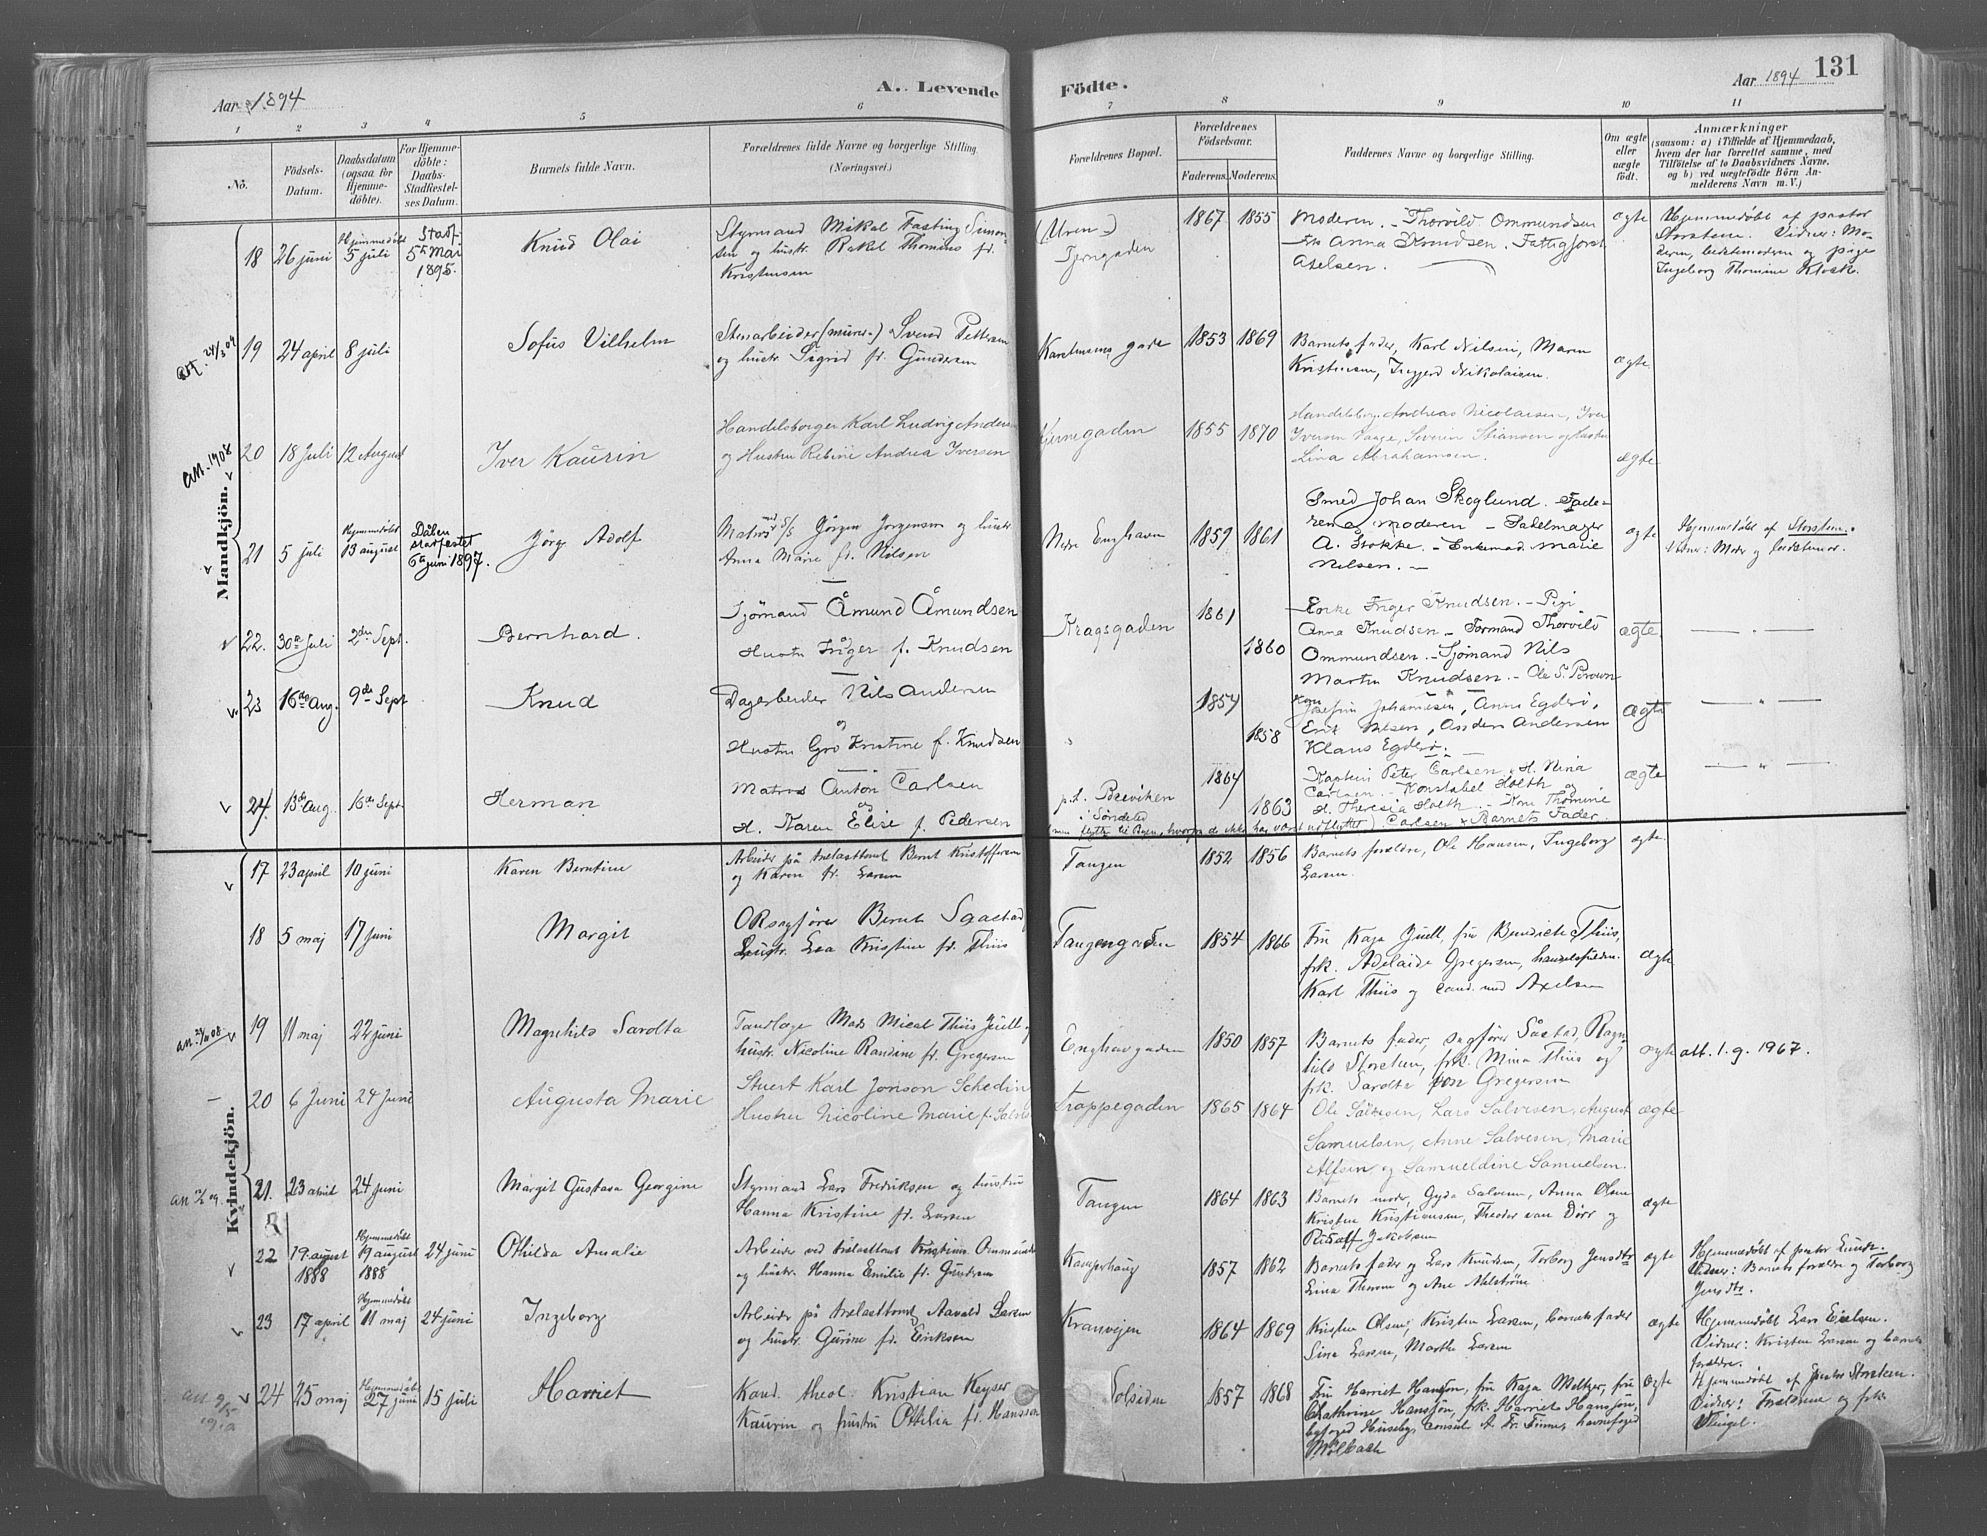 Aar 1894
A. Levende Födte.
Aar 1894 131
1 2 3 4 5 6 7 8 9 10 11
No.
Födsels-Datum.
Daabsdatum (ogsaa for Hjemme-döbte).
For Hjemme-döbte: Daabs-Stadfæstel-ses Datum.
Barnets fulde Navn.
Forældrenes fulde Navne og borgerlige Stilling. (Næringsvei.)
Forældrenes Bopæl.
Forældrenes Födselsaar.
Faderens. Moderens.
Faddernes Navne og borgerlige Stilling.
Om ægte eller uægte födt.
Anmærkninger
(saasom: a) i Tilfælde af Hjemmedaab, hvem der har forrettet samme, med Tilföielse af to Daabsvidners Navne. og b) ved uægtefödte Börn Anmelderens Navn m. V.)
Mandkjön.
18 26 juni Hjemmedöbt 5 juli Stadf. 5te Mai 1895. Knud Olai
Styrmand Mikal Fasting Simon-
sen og hustr. Rakel Thomine f.
Kristensen
(Uren-) 1867 1855
Moderen. - Thorvild Ommundsen
Anna Knudsen. Fattigforst.
Axelsen.
ægte
Hjemmedöbt af pastor
Storsten. Vidner: Mo-
deren, bedstemoderen og pige
Ingeborg Thomine Klosk.
19 24 april 8 juli Sofus Vilhelm
Stenarbeider (murer-) Svend Pettersen
og hustr. Sigrid f. Gundersen
Karstensens gade 1853 1869
Barnets fader, Karl Nilsen, Maren
Kristensen, Ingjerd Nikolaisen.
ægte
an. 1908
20 18 Juli 12 August Iver Kaurin
Handelsborger Karl Ludvig Andersen
og Hustru Rebine Andrea Iversen
1855 1870
Handelsborg. Andreas Nicolaisen, Iver
Iversen Vaage, Severin Stiansen og hustru
Lina Abrahamsen.
ægte
21 5 juli Hjemmedöbt 13 august Dåben stadfestet 6te juni 1897. Jörg Adolf
Matros med S/S Jörgen Jorgensen og hustr.
Anna Marie f. Nilsen
Nedre Enghaven 1859 1861
Smed Johan Skoglund. - Fade-
ren & moderen - Sadelmager
A. Stokke. - Enkemad. Marie
Nilsen. -
ægte
Hjemmedöbt af Storsten.
Vidner: Moder og bedstemor.
22. 30te Juli 2den Sept. Bernhard.
Sjömand Åmund Åmundsen
og
Hustru Inger f. Knudsen
Kragsgaden 1861 1860
Enke Inger Knudsen. - Pige
Anna Knudsen - Formand Thorvild
Ommundsen. - Sjömand Nils
Martin Knudsen. - Ole S. Brown
ægte — " —
23 16de Aug. 9de Sept Knud
Dagarbeider Nils Andersen
og
Hustru Gro Kristine f. Knudsen
" 1854 1858
Kone
Josefine Johannesen, Anne Egderö,
Erik Nilsen, Anders Andersen
Klaus Egderö.
ægte — " —
24. 13de Aug. 16de Sept Herman
Matros Anton Carlsen
og
H. Karen Elise f. Pedersen
p. t. Breviken i Söndeled 1864 1863
Kaptein Peter Carlsen, H. Nina
Carlsen. - Konstabel Holth og
H. Theresia Holth. - Kone Thomine
Carlsen & Barnets Fader.
ægte — " —
Kvindekjön.
17 23 april 10 juni Karen Berntine
Arbeider på trelasttomt Bernt Kristoffersen
og Karen f. Larsen
Tangen 1852 1856
Barnets forældre, Ole Hansen, Ingeborg
Larsen.
ægte
18 5 maj 17 juni Margit
ORsagförer Bernt Saastad
hustr. Lea Kristine f. Thiis
Tangengaden 1854 1866
Fru Kaja Juell, fru Benedicte Thiis,
frk. Adelaide Gregersen, handelsfuldm.
Karl Thiis og Cand. med Axelsen
ægte
19 11 maj 22 juni Magnhild Sarolta
Tandlæge Mads Micael Thiis Juell og
hustr. Nicoline Randine f. Gregersen
Enghavgaden 1850 1857
Barnets fader, sagförer Såstad, Ragn-
hild Storsteen, frk. Mina Thiis og
frk. Sarolta von Gregersen
ægte att. 1. 9. 1967.
20 6 Juni 24 Juni Augusta Marie
Stuert Karl Jonson Schedin
Hustru Nicoline Marie f. Salves
Trappegaden 1865 1864
Ole Salvesen, Lars Salvesen, August
Samuelsen, Anne Salvesen, Marie
Alfsen og Samueldine Samuelsen.
ægte
21. 23 april 24 juni Margit Gustava Georgine
Styrmand Lars Fredriksen og hustru
Hanna Kristine f. Larsen
Tangen 1864 1863
Barnets moder, Gyda Salvesen, Anna Olsen
Kristen Kristiansen, Theodor van Dörr og
Rudolf Jakobsen
ægte
22 19 august 1888 Hjemmedöbt 19 august 1888 24 juni Othilda Amalie
Arbeider ved trelasttomt Kristian Ommundsen
og hustr. Hanna Emilie f. Gundersen
Kamperhaug 1857 1862
Barnets fader og Lars Knudsen, Torborg Jensdtr
Lina Thorsen og Ane Ahlströne
ægte
Hjemmedöbt af pastor Lunde.
Vidner: Barnets forældre og Torborg
Jensdtr.
23 17 april Hjemmedöbt 11 maj 24 juni Ingeborg
Arbeider på trelasttomt Aavald Larsen
og hustr. Gurine f. Eriksen
Kranvejen 1864 1869
Kristen Olsen, Kristen Larsen, barnets fader
Sina Larsen, Marthe Larsen
ægte
Hjemmedöbt Lars Eielsen.
Vidner: Kristen Larsen og barnets
forældre.
24 25 maj Hjemmedöbt 27 juni 15 juli Harriet
Kand. theol. Kristian Keyser
Kaurin og hustru Othilia f. Hansson
Solsiden 1857 1868
Fru Harriet Hansson, fru Kaja Meltzer, fru
Chathrine Hansson, frk. Harriet Hansson,
byfoged Huseby, Consul A. Fr. Finne, havnefoged
Molbach
ægte
Hjemmedöbt af Pastor Storsteen.
Vidner: Forældrene og frk.